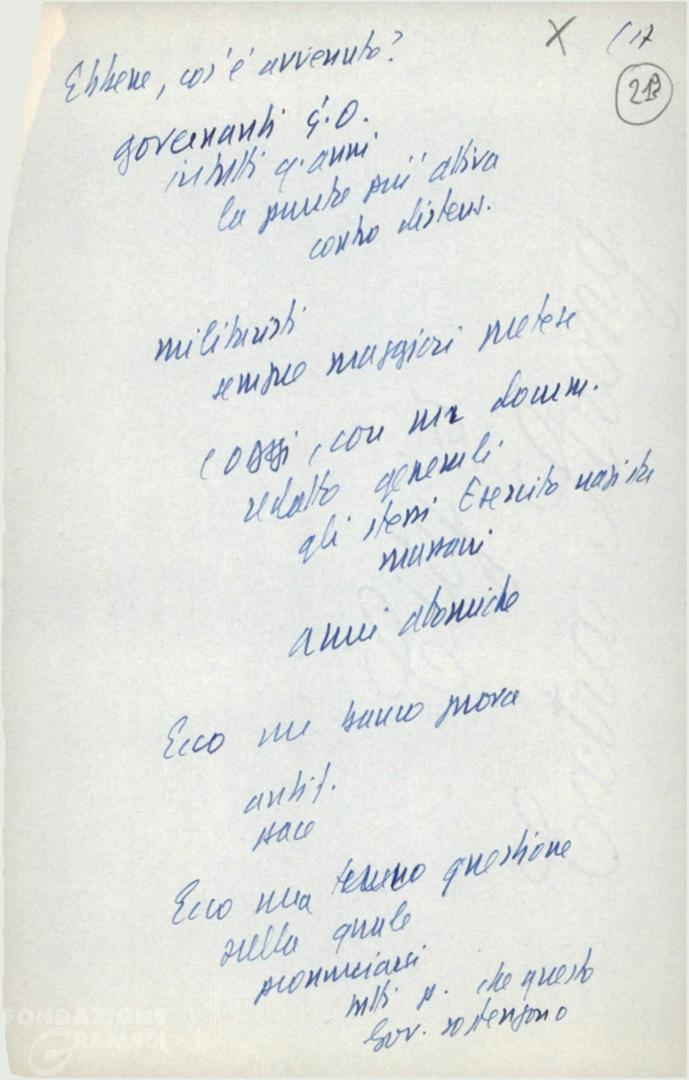 X (17
217
Ebbene, cos'è avvenuto?
governanti G.O.
in tutti q. anni
la punta più attiva
contro distens.
militaristi
sempre maggiori pretese
oggi, con un docum.
redatto generali
gli stessi Esercito nazista
massacri
armi atomiche
Ecco un banco prova
antif.
pace
Ecco una terreno questione
sulla quale
pronunciarsi
tutti p. che questo
Gov. sostengono
FONDAZIONE
GRAMSCI